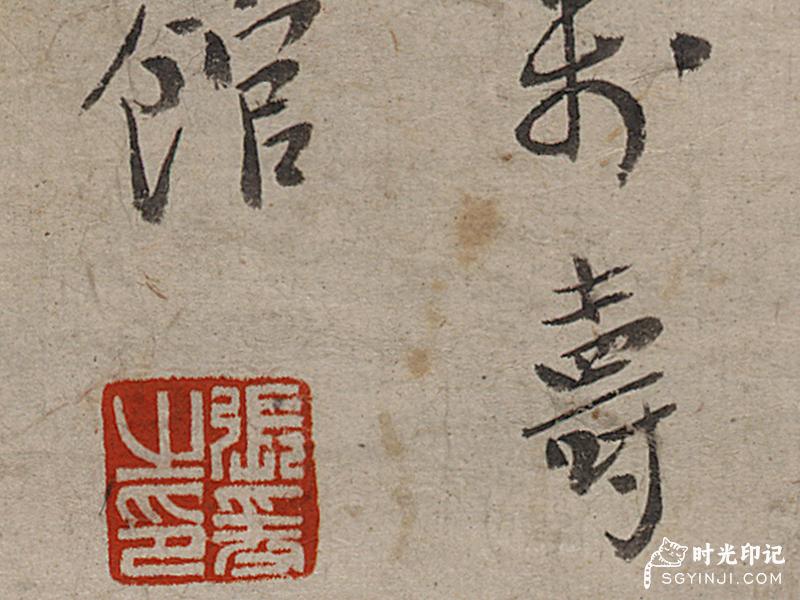 壽
館
張
之印
时光印记
SGYINJI.COM